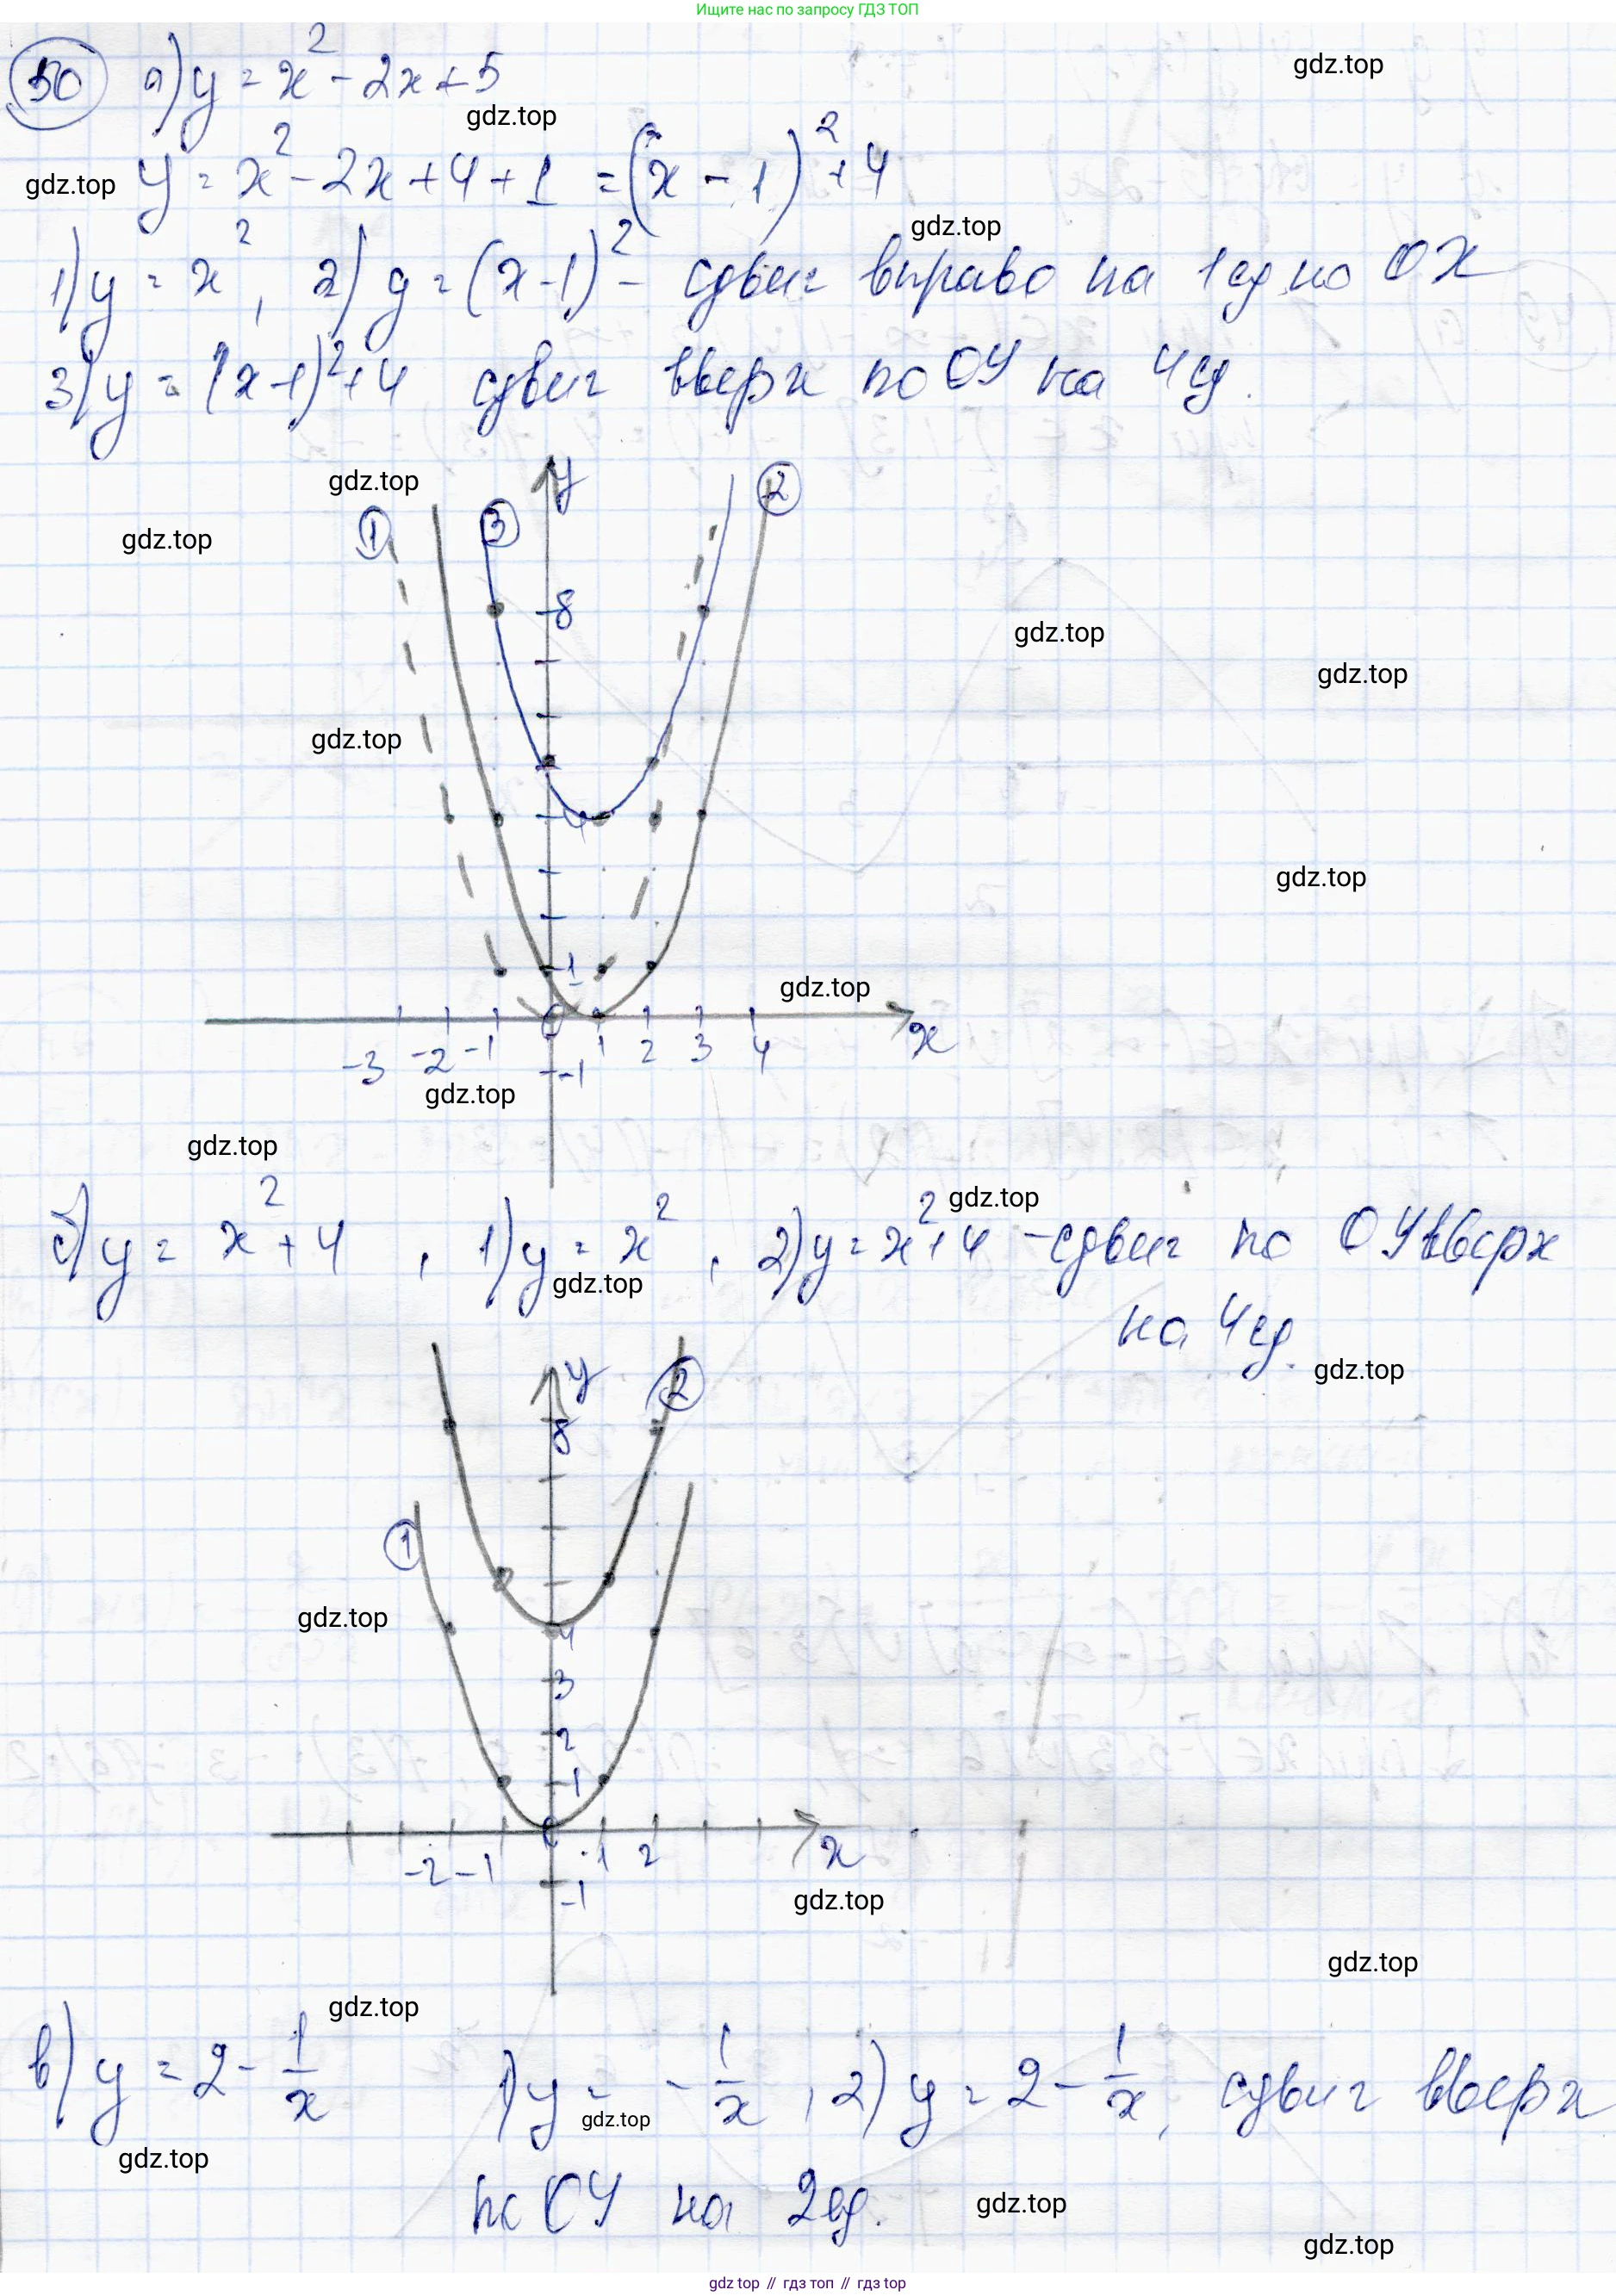 Ищите нас по запросу ГДЗ ТОП
50 а) y = x² - 2x + 5
gdz.top
gdz.top
y = x² - 2x + 4 + 1 = (x - 1)² + 4
gdz.top
gdz.top
1) y = x², 2) y = (x-1)² - сдвиг вправо на 1 ед по OX
3) y = (x-1)² + 4 сдвиг вверх по OY на 4 ед.
gdz.top
y
2
1
3
gdz.top
8
gdz.top
gdz.top
gdz.top
4
gdz.top
1
gdz.top
0
x
-3 -2 -1 1 2 3 4
-1
gdz.top
gdz.top
gdz.top
б) y = x² + 4, 1) y = x², 2) y = x² + 4 - сдвиг по OY вверх
gdz.top
на 4 ед.
gdz.top
y
2
8
1
gdz.top
4
3
2
1
0
x
-2 -1 1 2
-1
gdz.top
gdz.top
gdz.top
в) y = 2 - 1/x 1) y = - 1/x, 2) y = 2 - 1/x, сдвиг вверх
gdz.top
gdz.top
по OY на 2 ед.
gdz.top
gdz.top
gdz top // гдз топ // гдз top